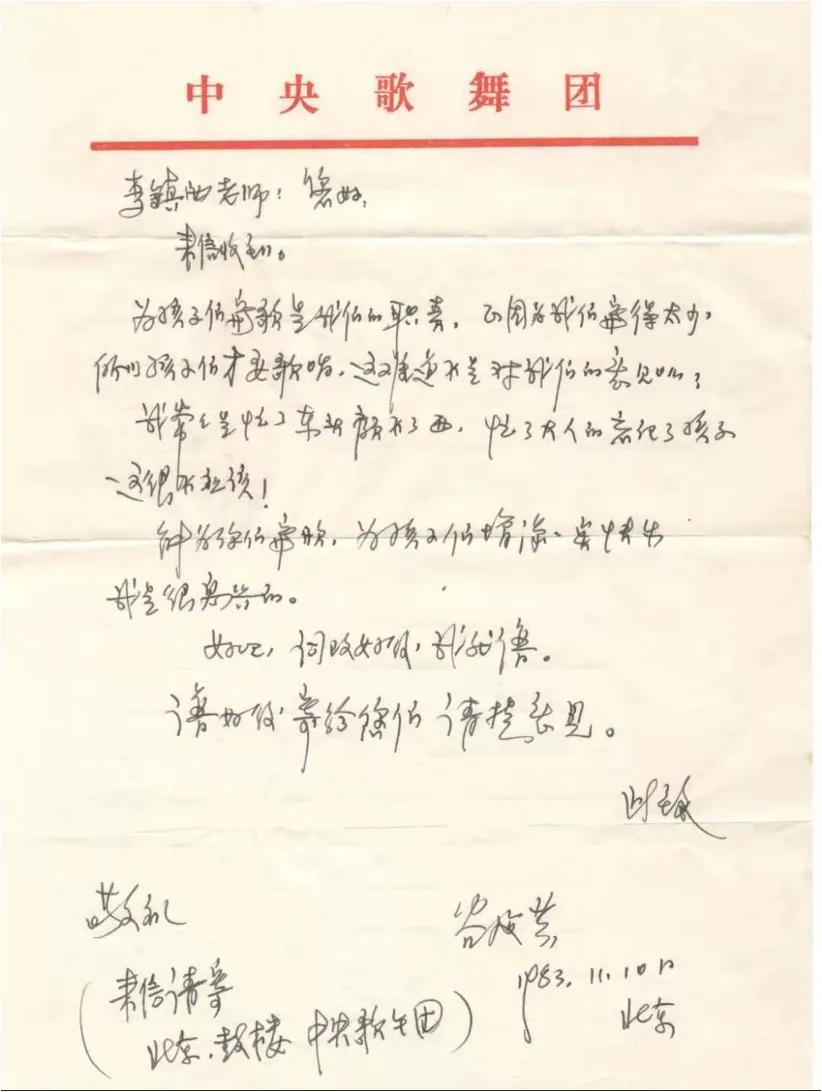 中央歌舞团
李镇西老师：您好，
来信收到。
为孩子们写歌是我们的职责，正因为我们写得太少，
所以孩子们才要歌唱，这难道不是对我们的意见吗？
我常常是忙了东头顾不了西，忙了大人的忘记了孩子
这很不应该！
能为你们写歌，为孩子们增添一点快乐
我是很高兴的。
如此，词改好后，我就谱。
谱好后寄给您们请提意见。
此致
敬礼
谷建芬
1983.11.10日
北京
（来信请寄
北京.鼓楼 中央歌午团）